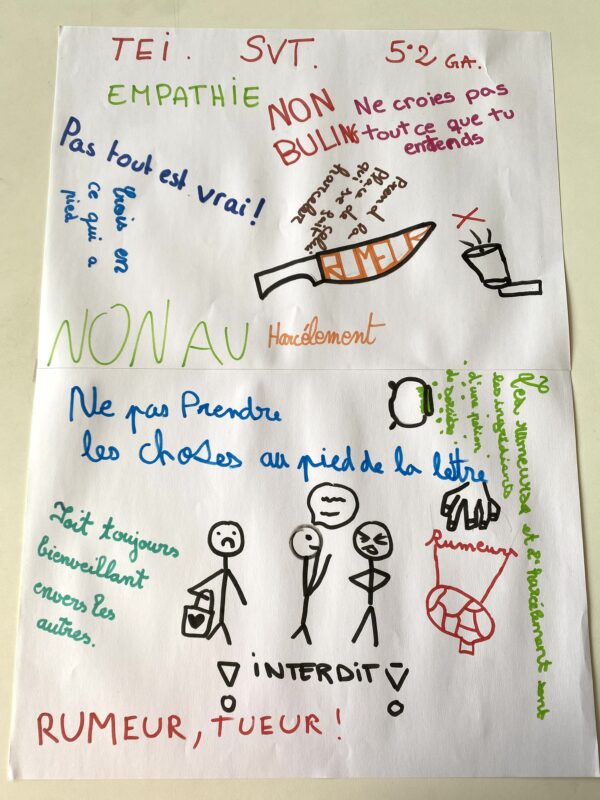 TEI. SVT. 5°2 GA.
EMPATHIE
NON
BULING
Ne croies pas
tout ce que tu
entends
Pas tout est vrai!
Crois en
ce qui a
pied
Prend la
place de
qui se fait
harceler
RUMEUR
NON AU Harcélement
Ne pas Prendre
les choses au pied de la lettre
Les rumeurs et l'harcèlement sont
les ingrédients
d'une potion
de suicide
Soit toujours
bienveillant
envers les
autres.
Rumeurs
! INTERDIT !
RUMEUR, TUEUR !